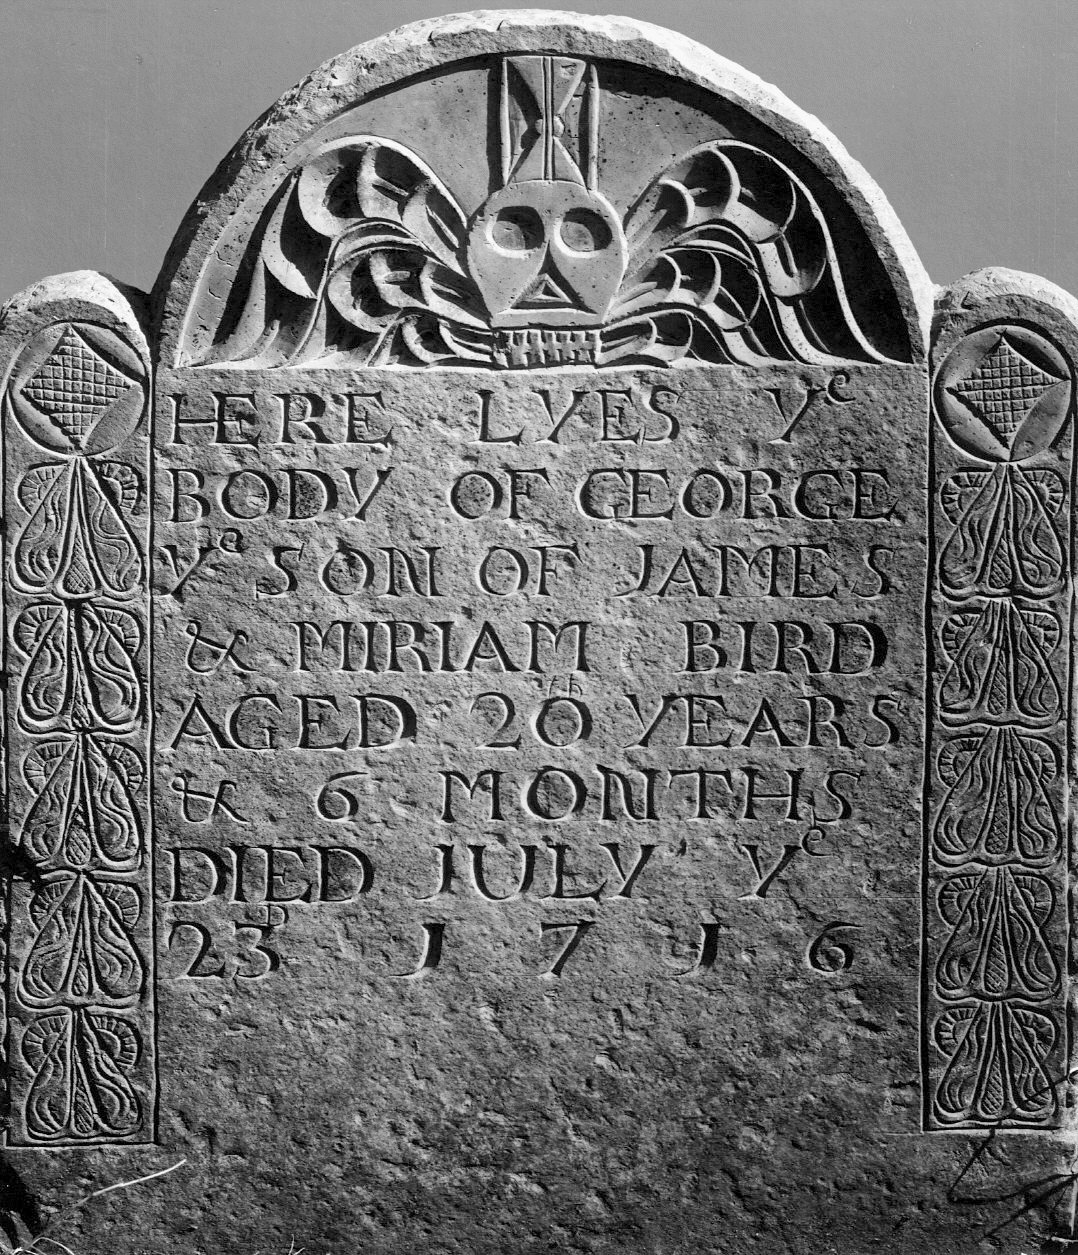 HERE LYES Yᵉ
BODY OF GEORGE
Yᵉ SON OF JAMES
& MIRIAM BIRD
AGED 20 YEARS
& 6 MONTHS
DIED JULY Yᵉ
23ᴰ 1716